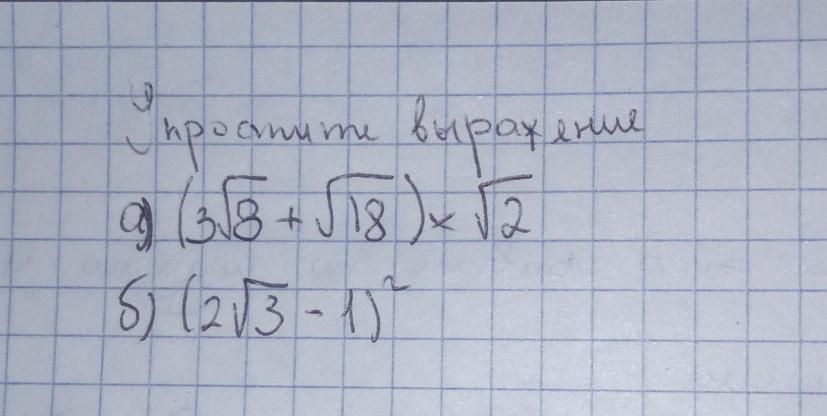 Упростите выражение
а) (3√8 + √18) × √2
б) (2√3 - 1)²